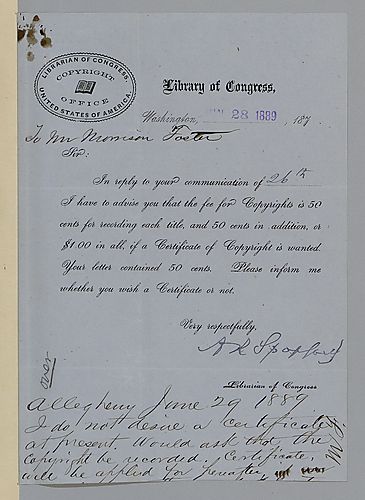 LIBRARIAN OF CONGRESS,
COPYRIGHT
OFFICE
UNITED STATES OF AMERICA.
Library of Congress,
Washington, JUN 28 1889, 187
To Mr Morrison Foster
Sir:
In reply to your communication of 26th
I have to advise you that the fee for Copyrights is 50
cents for recording each title, and 50 cents in addition, or
$1.00 in all, if a Certificate of Copyright is wanted.
Your letter contained 50 cents. Please inform me
whether you wish a Certificate or not.
Very respectfully,
A R Spofford
Librarian of Congress
over
Allegheny June 29 1889
I do not desire a certificate
at present Would ask that the
Copyright be recorded. Certificate,
will be applied for hereafter